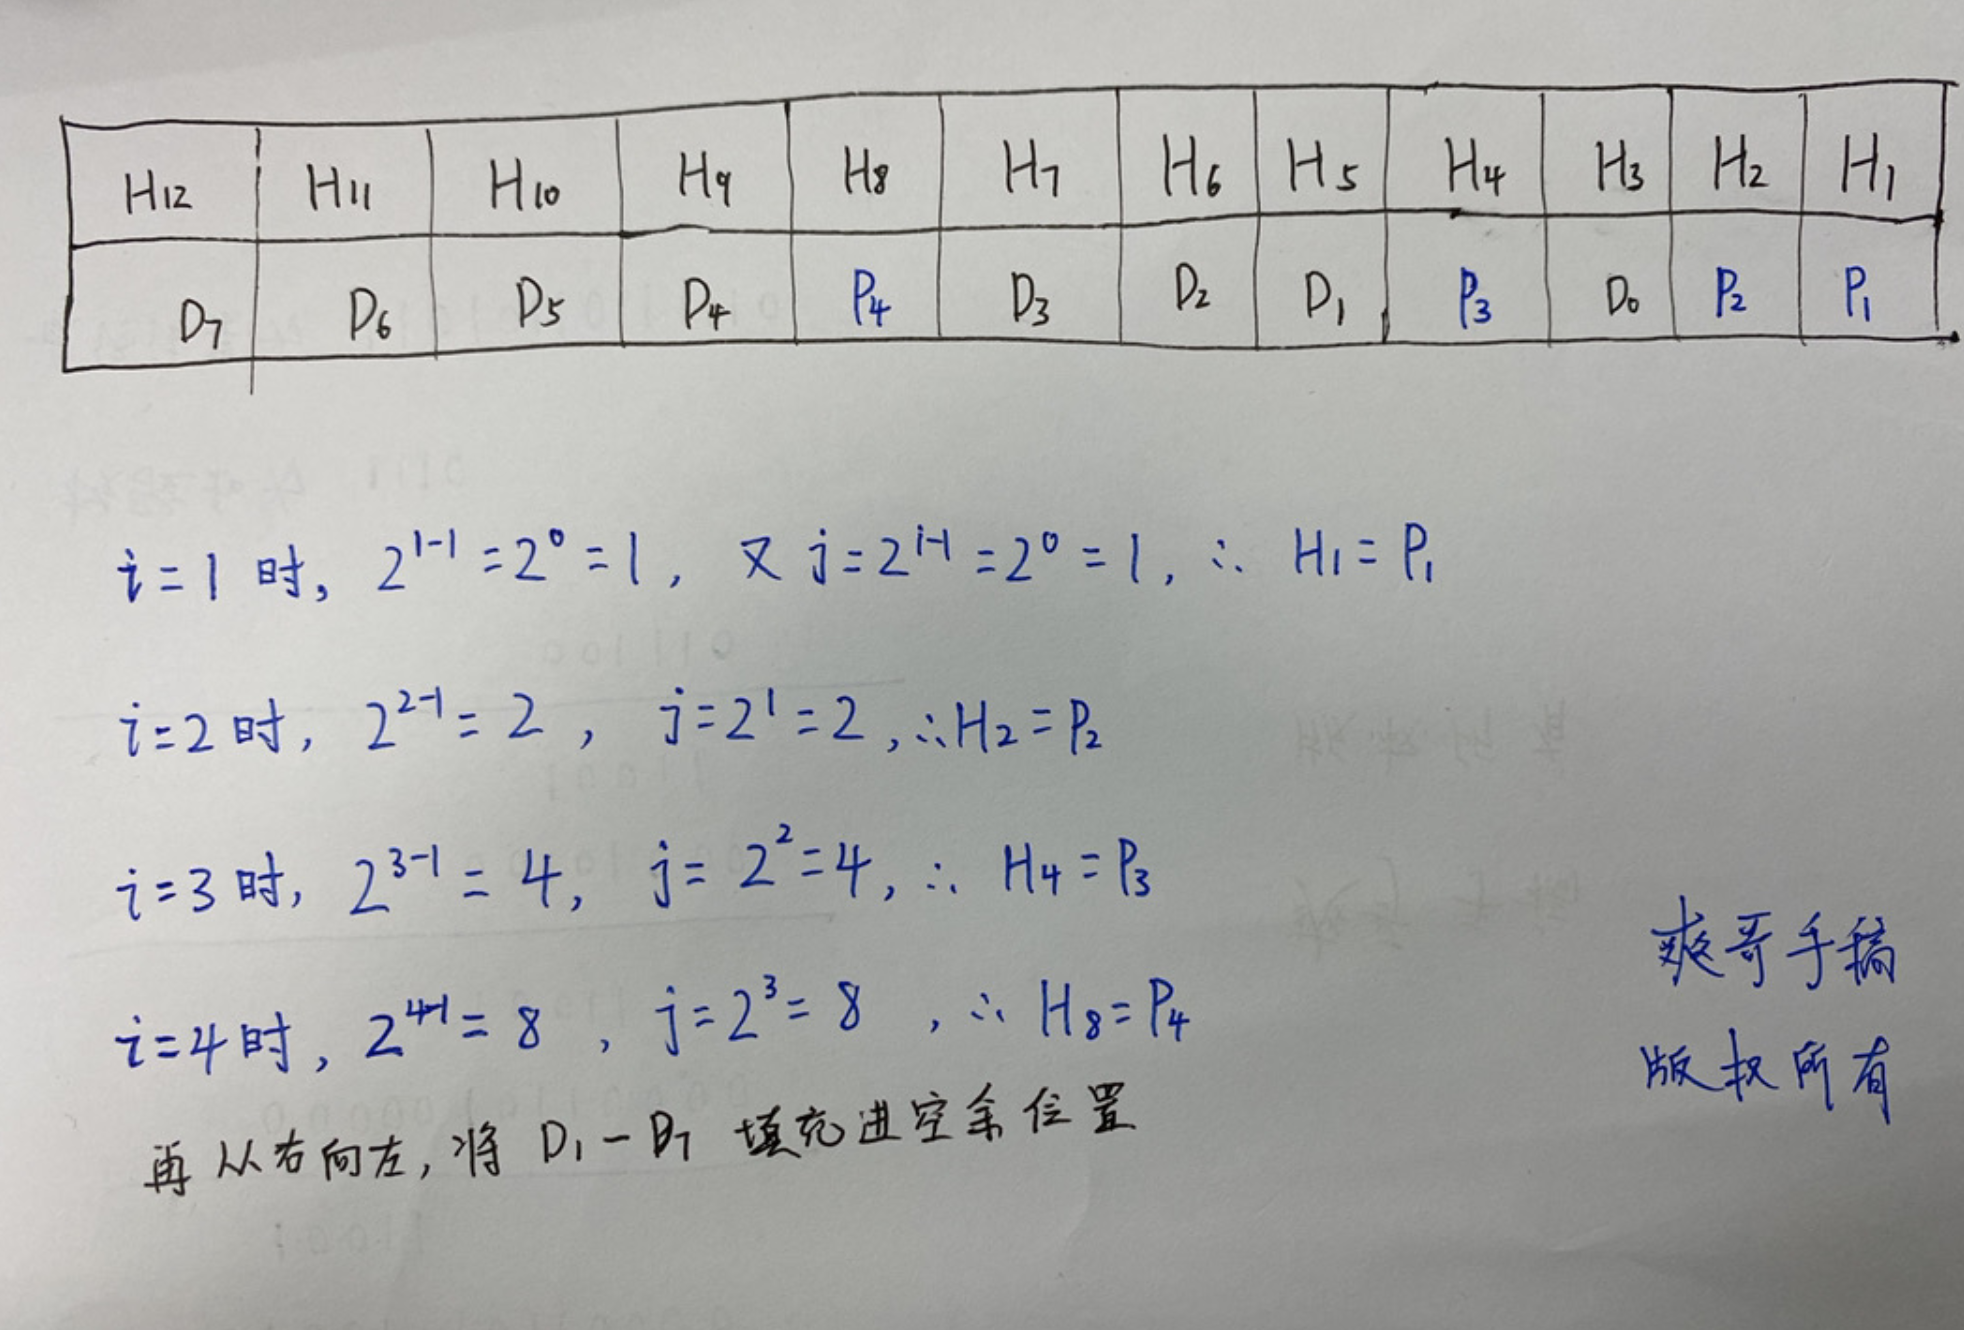 H12 H11 H10 H9 H8 H7 H6 H5 H4 H3 H2 H1
D7 D6 D5 D4 P4 D3 D2 D1 P3 D0 P2 P1
i=1时, 2^{1-1}=2^0=1, 又 j=2^{i-1}=2^0=1, ∴ H1=P1
i=2时, 2^{2-1}=2, j=2^1=2, ∴H2=P2
i=3时, 2^{3-1}=4, j=2^2=4, ∴ H4=P3
爽哥手稿
i=4时, 2^{4-1}=8, j=2^3=8, ∴ H8=P4
版权所有
再从右向左,将 D1-D7 填充进空余位置